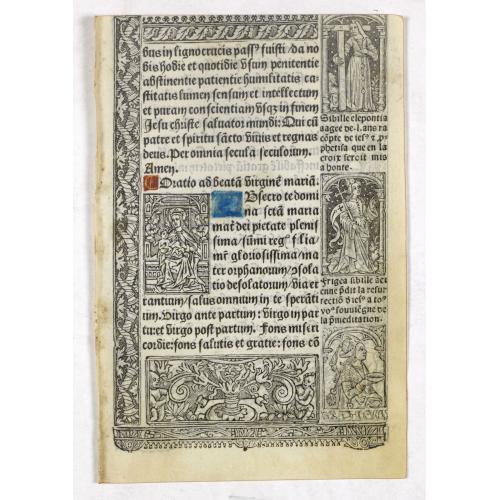 bus in ligno crucis passꝰ fuisti / da no
bis hodie et quotidie vsum penitentie
abstinentie patientie humilitatis ca
stitatis lumen sensum et intellectum
et puram conscientiam vsqȝ in finem
Jesu christe saluator mundi: Qui cū
patre et spiritu sācto viuis et regnas
deus. Per omnia secula seculorum.
Amen.
Oratio ad beatā virginē mariā.
Bsecro te domi
na sctā maria
mat̄ dei pietate pleni
sima / sūmi reg filia /
mr̄ gloriosissima / ma
ter orphanorum / ɔsola
tio desolatorum / via er
rantium / salus omnium in te sperāti
um. Virgo ante partum: virgo in par
tu: et virgo post partum. Fons miseri
cordie: fons salutis et gratie: fons cō
Sibille elepontia
aagee de .l. ans ra
cōpte de iesꝰ z ꝓ
phetisa que en la
croix seroit mis
a honte.
Frigea sibille āci
enne pdit la resur
rectiō diesꝰ a to
la pmeditation.